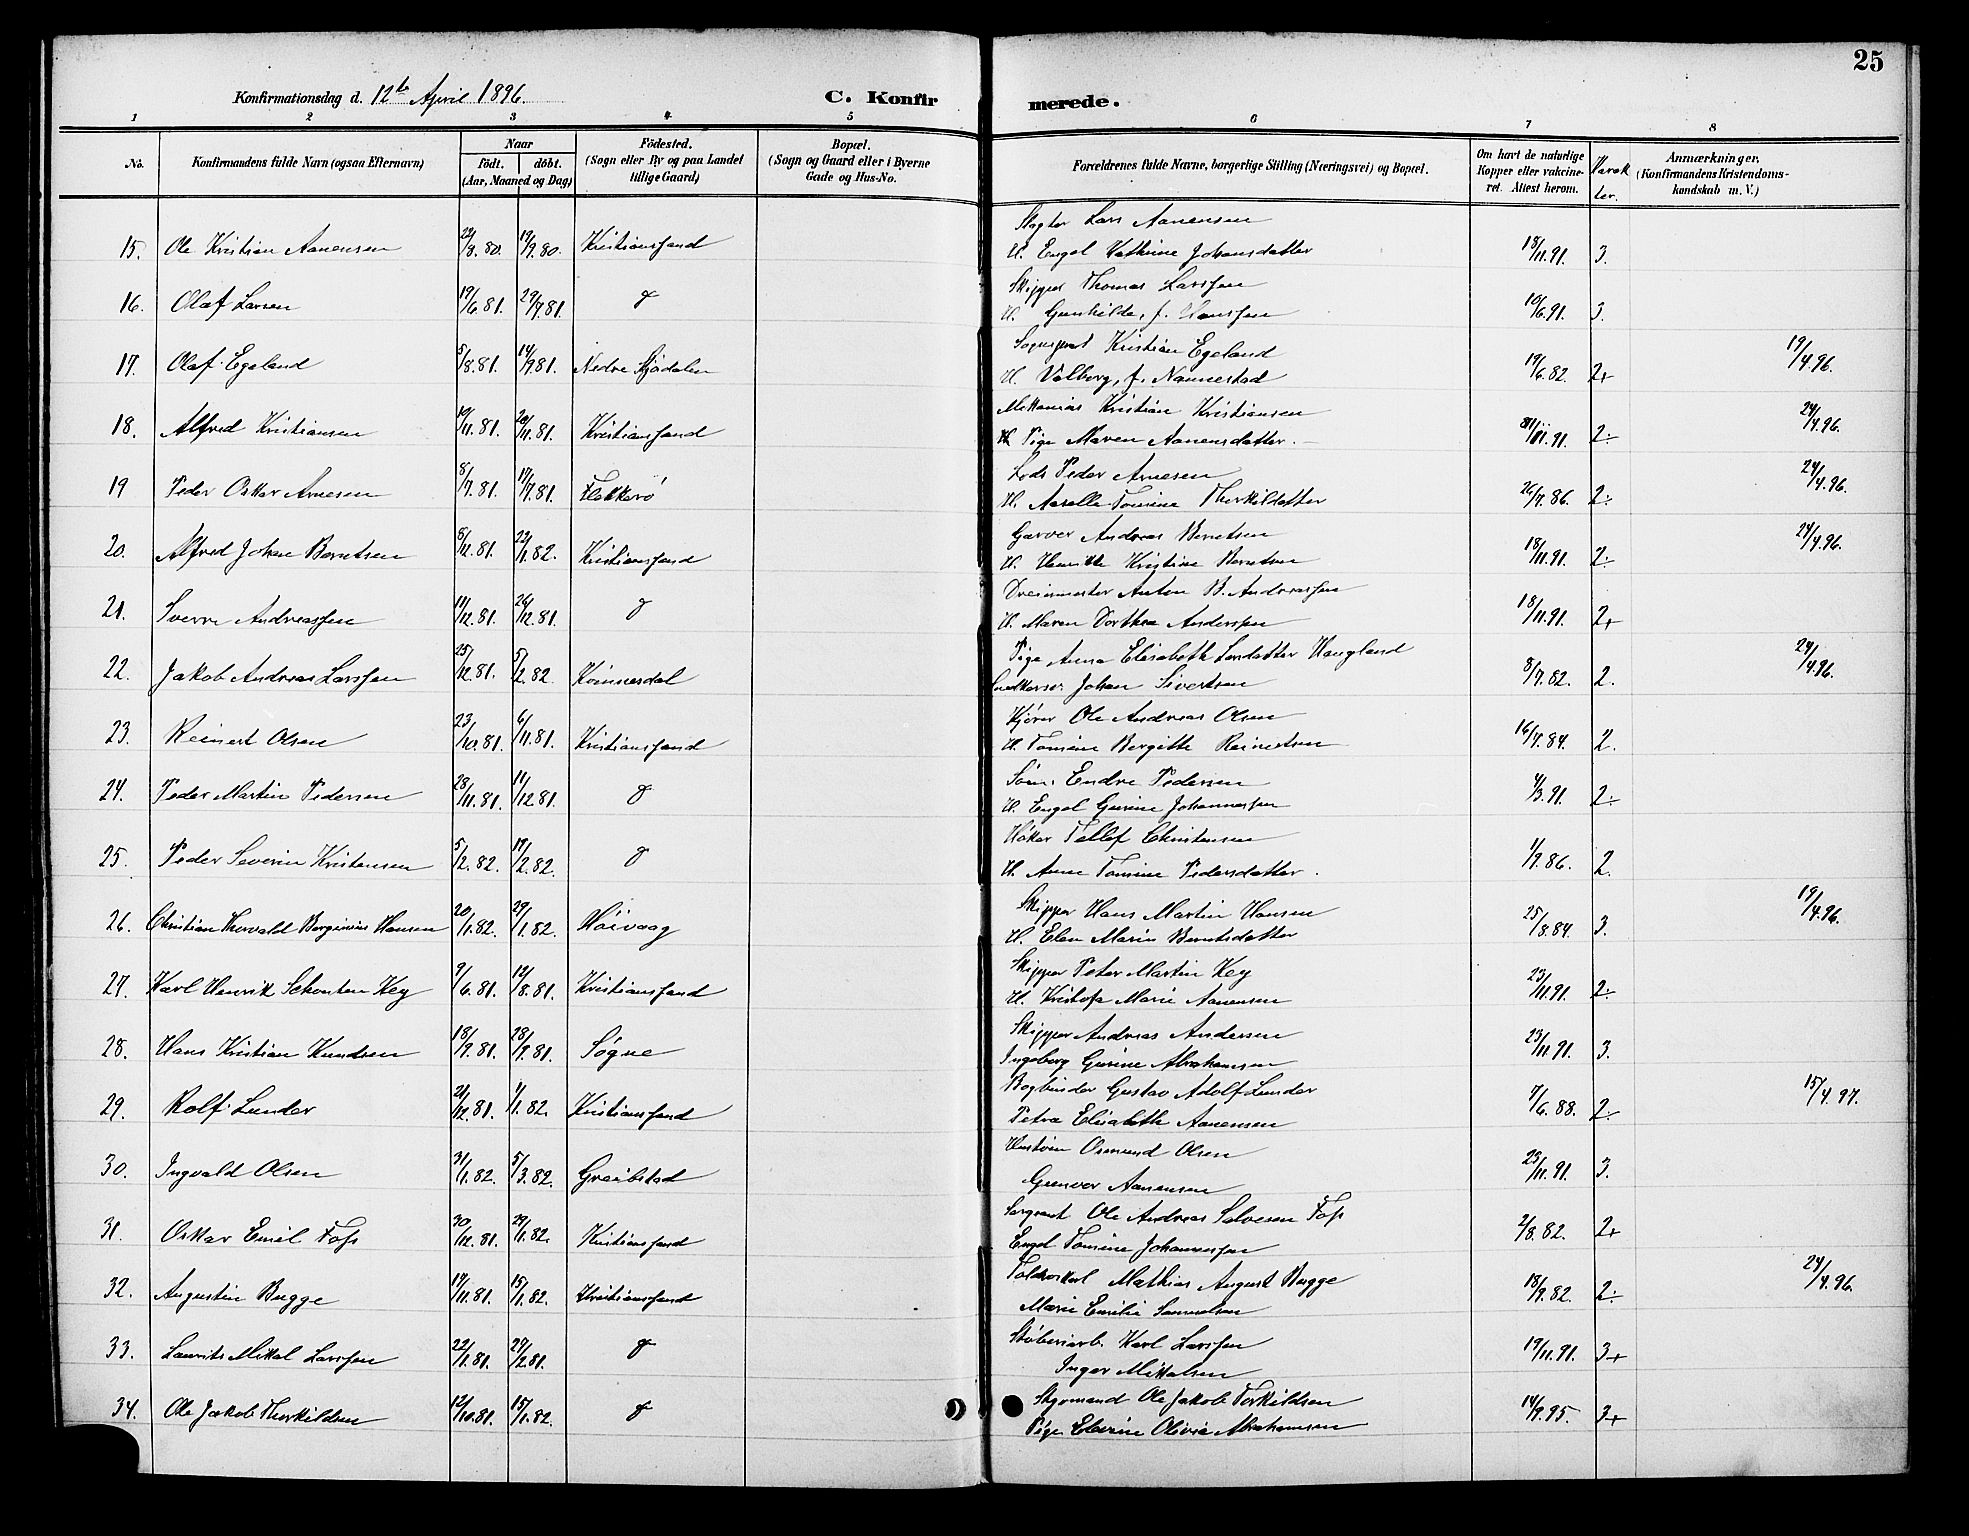 25
Konfirmationsdag d. 12te April 1896.
C. Konfirmerede.
1 2 3 4 5 6 7 8
No. Konfirmandens fulde Navn (ogsaa Efternavn) Naar født. døbt. (Aar, Maaned og Dag) Fødested. (Sogn eller By og paa Landet tillige Gaard) Bopæl. (Sogn og Gaard eller i Byerne Gade og Hus-No. Forældrenes fulde Navne, borgerlige Stilling (Næringsvei) og Bopæl. Om havt de naturlige Kopper eller vakcineret. Attest herom. Karakter. Anmærkninger, (Konfirmandens Kristendomskundskab m. V.)
Slagter Lars Aanensen
15. Ole Kristian Aanensen 22/8.80. 19/9.80. Kristianssand H. Engel Kathrine Johansdatter 18/11.91. 3.
Skipper Thomas Larssen
16. Olaf Larsen 19/6.81. 29/9.81. d H. Gunhilde, f. Hanssen 10/6.91. 3.
Sogneprest Kristian Egeland
17. Olaf Egeland 5/8.81. 14/9.81. Nedre Stjødalen H. Valborg, f. Nannestad 19/6.82. 2+ 19/4.96.
Mekanicus Kristian Kristiansen
18. Alfred Kristiansen 19/11.81. 20/11.81. Kristianssand Pige Maren Aanensdatter. 2÷ 24/4.96.
Lods Peder Arnesen
19 Peder Oskar Arnesen 8/7.81. 17/7.81. Flekkerø H. Aselle Tomine Therkildatter 26/7.86. 2÷ 24/4.96.
Garver Andreas Berntsen
20. Alfred Johan Berntsen 8/12.81. 22/1.82. Kristianssand H. Henrikke Kristine Berntsen 18/11.91. 2÷ 24/4.96.
Dreiermester Anton B. Andreassen
21. Sverre Andreassen 11/12.81. 26/12.81. d H. Maren Dorthea Anderssen 18/11.91. 2+
Pige Anna Elisabeth Larsdatter Haugland
22. Jakob Andreas Larssen 25/12.81. 5/2.82. Konnesdal Johan Sivertsen 8/7.82. 2. 24/4.96.
Kjører Ole Andreas Olsen
23. Reinert Olsen 23/10.81. 6/11.81. Kristianssand H. Tomine Bergitte Reinertsen 16/7.84. 2.
Søm. Endre Pedersen
24. Peder Martin Pedersen 28/11.81. 11/12.81. d H. Engel Gurine Johannessen 4/3.91. 2÷
Høker Tellef Christensen
25. Peder Severin Kristensen 5/2.82. 19/2.82. d H. Anne Tomine Pedersdatter. 1/9.86. 2.
Skipper Hans Martin Hansen
26. Christian Thorvald Berginius Hansen 20/1.82. 29/1.82. Høivaag H. Elen Marie Berntsdatter 25/8.84. 3. 19/4.96.
Skipper Peter Martin Key
27. Karl Henrik Schouten Key 9/6.81. 12/8.81. Kristianssand H. Kristofa Marie Aanensen 23/11.91. 2÷
Skipper Andreas Andersen
28. Hans Kristian Knudsen 18/9.81. 28/9.81. Søgne Ingeborg Gurine Abrahamsen 23/11.91. 3.
Bogbinder Gustav Adolf Lunder
29. Rolf Lunder 21/12.81. 1/1.82. Kristianssand Petra Elisabeth Aanensen 7/6.88. 2÷ 15/4.97.
Osmund Olsen
30. Ingvald Olsen 31/1.82. 5/3.82. Greibstad Gunvor Aanensen 23/11.91. 3.
Sergeant Ole Andreas Salvesen Foss
31. Oskar Emil Foss 30/12.81. 29/1.82. Kristianssand Engel Tomine Johannessen 2/8.82. 2+
Mathias August Bugge
32. Augustin Bugge 17/11.81. 15/1.82. Kristianssand Marie Emilie Samuelsen 18/9.82. 2÷ 24/4.96.
Støberiarb. Karl Larssen
33. Laurits Mikal Larssen 22/1.81. 27/2.81. d Inger Mikalsen 19/11.91. 3+
Styrmand Ole Jakob Torkildsen
34. Ole Jakob Thorkildsen 12/10.81. 15/1.82. d Pige Elevine Olivia Abrahamsen 14/9.95. 3+